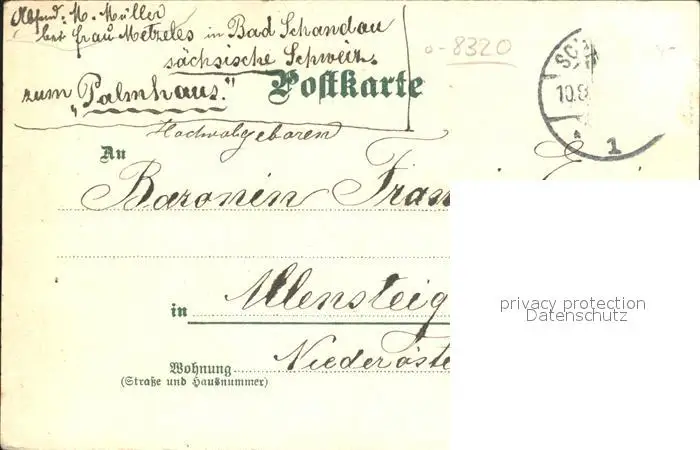 Absend: M. Müller
bei Frau Metzeles in Bad Schandau
sächsische Schweiz.
zum „Palmhaus."
Postkarte
8320
10.8
1
Hochwolgeboren
An
Baronin Fran
in Allensteig
Niederöste
Wohnung
(Straße und Hausnummer)
privacy protection
Datenschutz